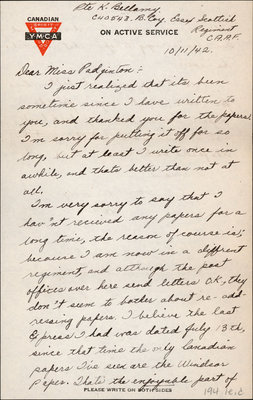 Pte K. Bellamy.
CANADIAN
C40543. B. Coy Essex Scottish
YMCA
ON ACTIVE SERVICE
Regiment
C.A.A.F.
10/11/42.
Dear Miss Padginton:-
I just realized that its been
sometime since I have written to
you, and thanked you for the papers.
I'm sorry for putting it off for so
long, but at least I write once in
awhile, and thats better than not at
all.
I'm very sorry to say that I
hav'nt recieved any papers for a
long time, the reason of course is;
because I am now in a different
regiment, and although the post
offices over here send letters O.K, they
don't seem to bother about re-add-
ressing papers. I believe the last
Express I had was dated July 13th,
since that time the only Canadian
papers I've seen are the Windsor
Paper. Thats the enjoyable part of
PLEASE WRITE ON BOTH SIDES